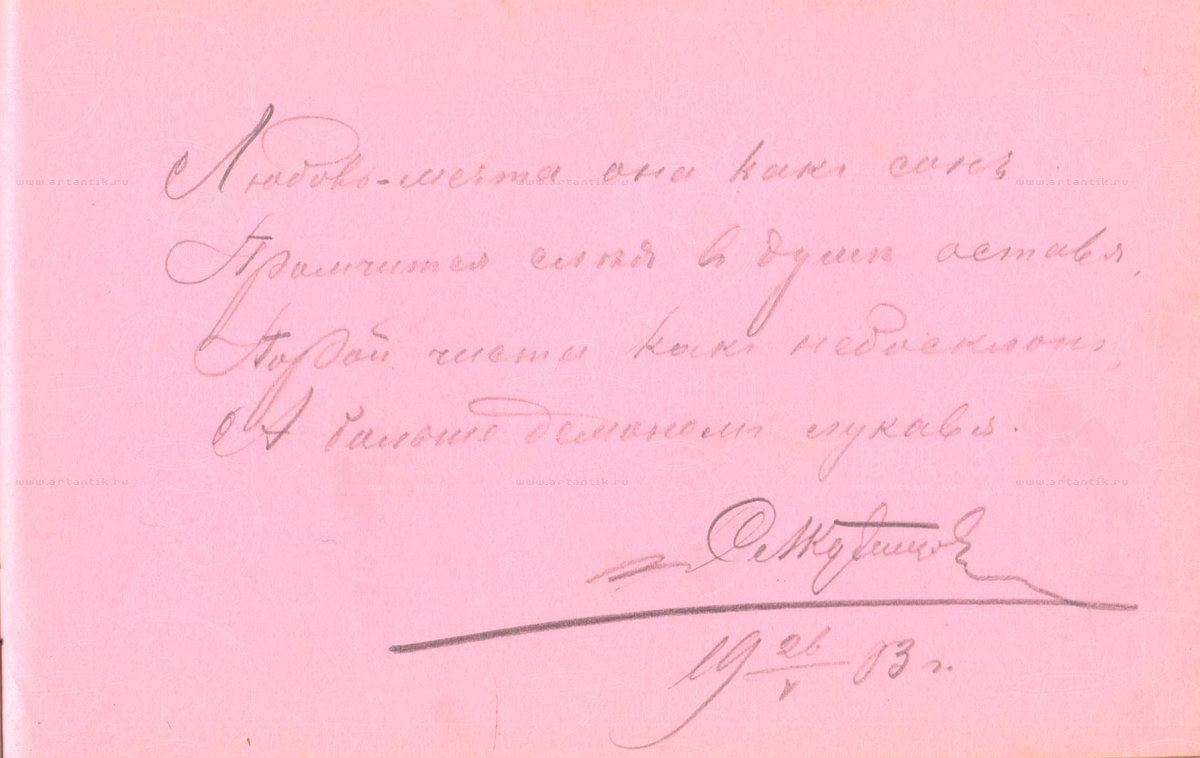 Любовь-мечта она какъ сонъ
Промчится слѣдъ в душѣ оставя,
Порой чиста какъ небосклонъ,
А больше демонами лукавя.
19 26/V 03 г.
www.artantik.ru www.artantik.ru www.artantik.ru
www.artantik.ru www.artantik.ru www.artantik.ru